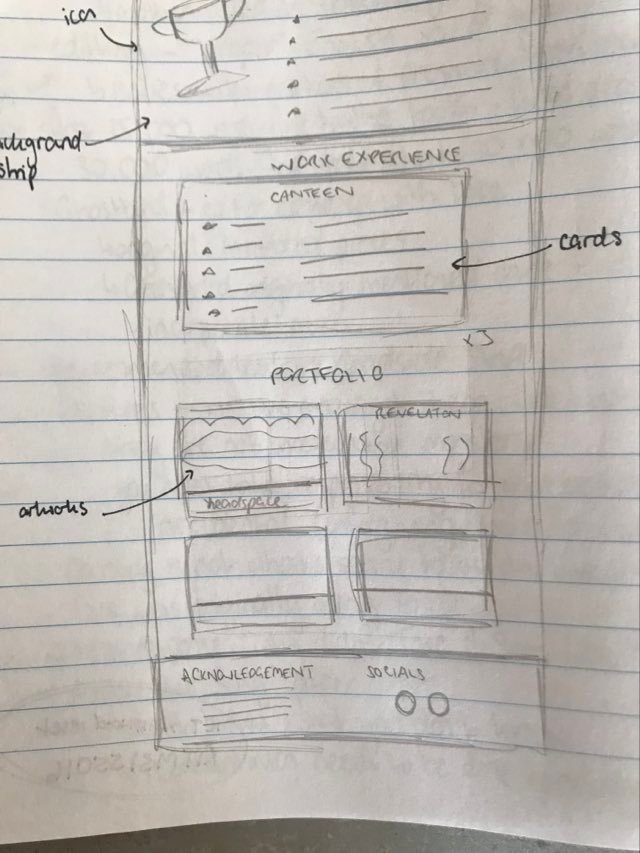 icon
background
strip
WORK EXPERIENCE
CANTEEN
cards
x3
PORTFOLIO
REVELATION
artworks
headspace
ACKNOWLEDGEMENT
SOCIALS